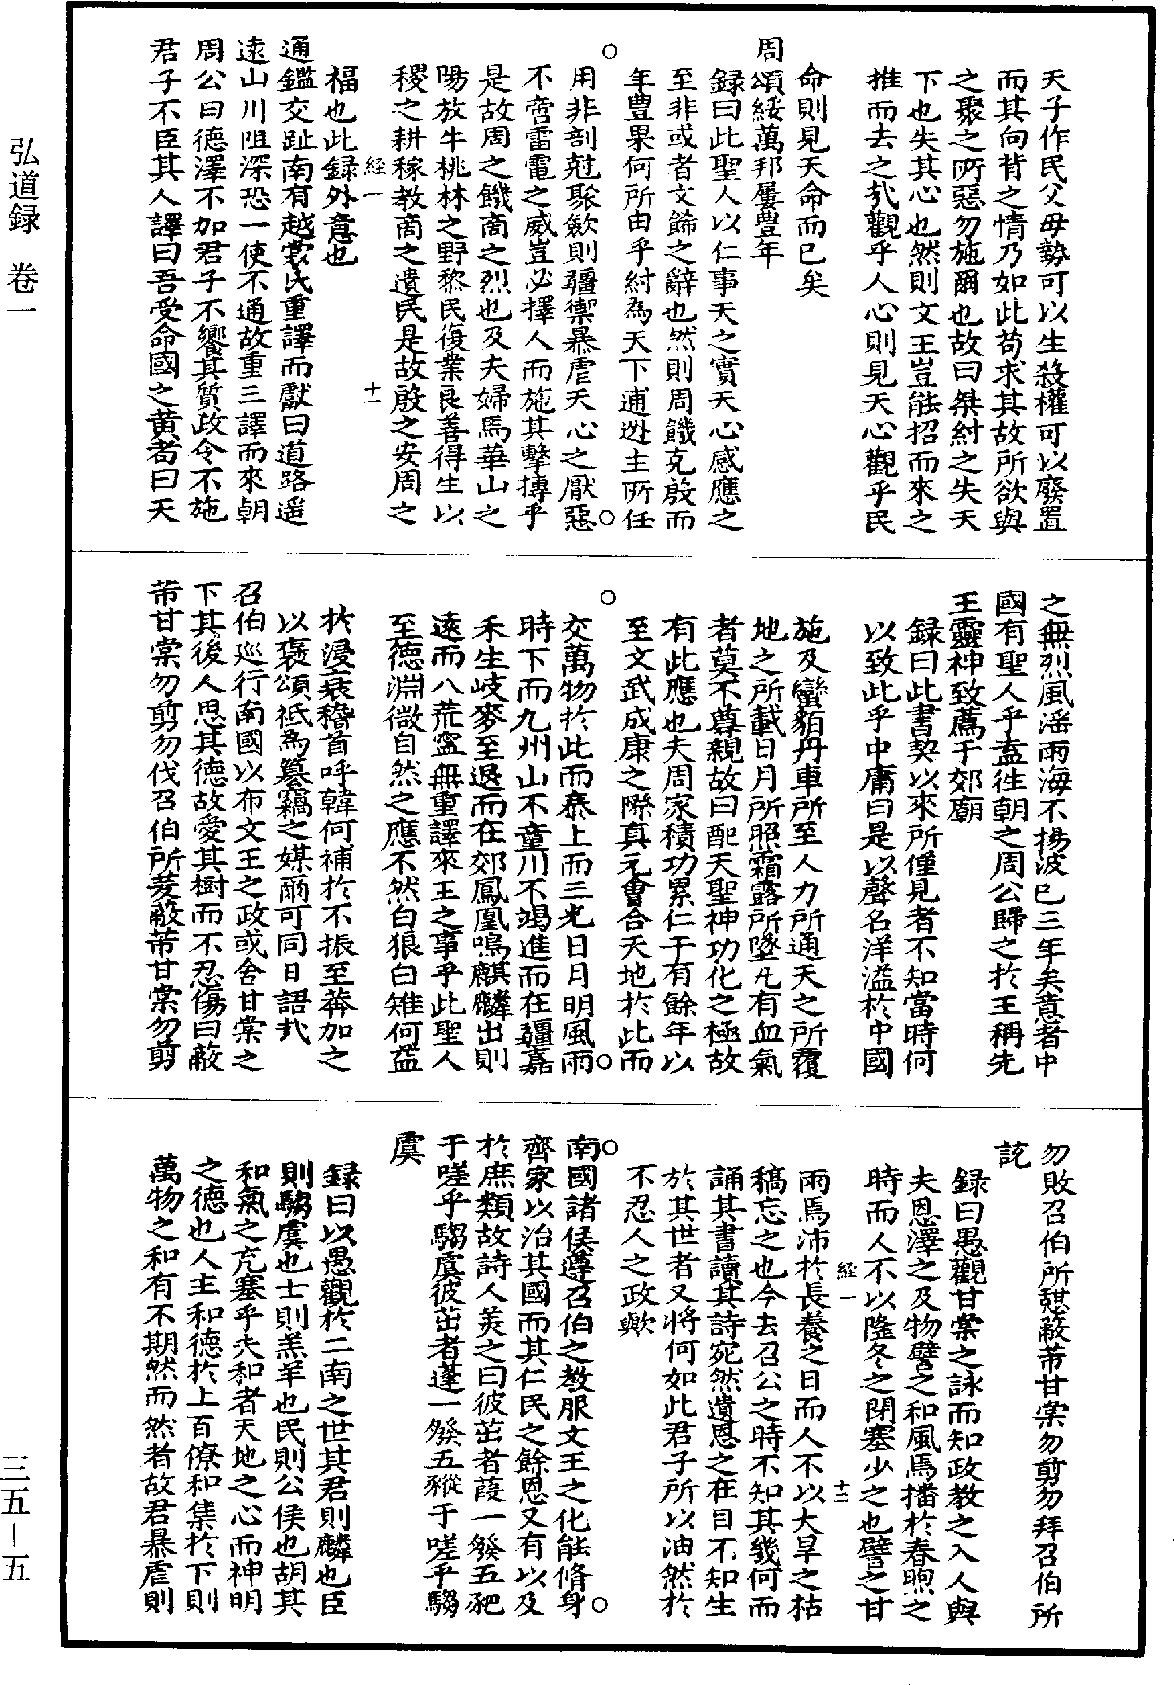 弘道録　卷一
三五－五
天子作民父母勢可以生殺權可以廢置
而其向背之情乃如此苟求其故所欲與
之聚之所惡勿施爾也故曰桀紂之失天
下也失其心也然則文王豈能招而來之
推而去之㢤觀乎人心則見天心觀乎民
命則見天命而已矣
周頌綏萬邦屢豐年
録曰此聖人以仁事天之實天心感應之
至非或者文飾之辭也然則周饑克殷而
年豊果何所由乎紂為天下逋逃主所任
用非剖尅聚斂則彊禦暴虐天心之厭惡
不啻雷電之威豈必擇人而施其擊摶乎
是故周之饑商之烈也及夫婦馬華山之
陽放牛桃林之野黎民復業良善得生以
稷之耕稼教商之遺民是故殷之安周之
經一
十一
福也此録外意也
通鑑交趾南有越裳氏重譯而獻曰道路遥
逺山川阻深恐一使不通故重三譯而來朝
周公曰德澤不加君子不饗其質政令不施
君子不臣其人譯曰吾受命國之黄耇曰天
之無烈風滛雨海不揚波已三年矣意者中
國有聖人乎盍徃朝之周公歸之於王稱先
王靈神致薦于郊廟
録曰此書契以來所僅見者不知當時何
以致此乎中庸曰是以聲名洋溢於中國
施及蠻貊舟車所至人力所通天之所覆
地之所載日月所照霜露所墜凡有血氣
者莫不尊親故曰配天聖神功化之極故
有此應也夫周家積功累仁千有餘年以
至文武成康之際真元會合天地於此而
交萬物於此而泰上而三光日月明風雨
時下而九州山不童川不竭進而在疆嘉
禾生岐麥至退而在郊鳳凰鳴麒麟出則
逺而八荒寧無重譯來王之事乎此聖人
至德淵微自然之應不然白狼白雉何益
於浸衰稽首呼韓何補於不振至莽加之
以褒頌祇為簒竊之媒爾可同日語㢤
召伯廵行南國以布文王之政或舍甘棠之
下其後人思其德故愛其樹而不忍傷曰蔽
芾甘棠勿剪勿伐召伯所茇蔽芾甘棠勿剪
勿敗召伯所憇蔽芾甘棠勿剪勿拜召伯所
說
録曰愚觀甘棠之詠而知政教之入人與
夫恩澤之及物譬之和風焉播於春煦之
時而人不以隆冬之閉塞少之也譬之甘
經一
十二
雨焉沛於長養之日而人不以大旱之枯
稿忘之也今去召公之時不知其幾何而
誦其書讀其詩宛然遺恩之在目不知生
於其世者又將何如此君子所以油然於
不忍人之政歟
南國諸侯遵召伯之教服文王之化能脩身
齊家以治其國而其仁民之餘恩又有以及
於庶類故詩人美之曰彼茁者葭一發五豝
于嗟乎騶虞彼茁者蓬一發五豵于嗟乎騶
虞
録曰以愚觀於二南之世其君則麟也臣
則騶虞也士則羔羊也民則公侯也胡其
和氣之充塞乎夫和者天地之心而神明
之德也人主和德於上百僚和集於下則
萬物之和有不期然而然者故君暴虐則